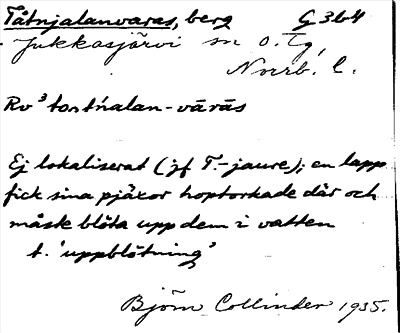 Tåtnjalanvaras, berg G 3b4
Jukkasjärvi sn o. Tg,
Norrb. l.
Rv
Ej lokaliserat (jf T.-jaure); en lapp
fick sina pjäxor hoptorkade där och
måste blöta upp dem i vatten
t. 'uppblötning'
Björn Collinder 1935.